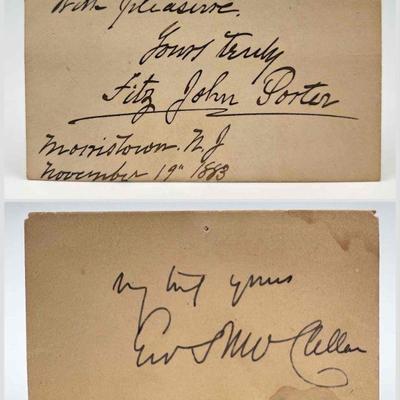 With pleasure.
Yours truly
Fitz John Porter
Morristown. N J
November 19" 1883
Very truly yours
Geo B McClellan